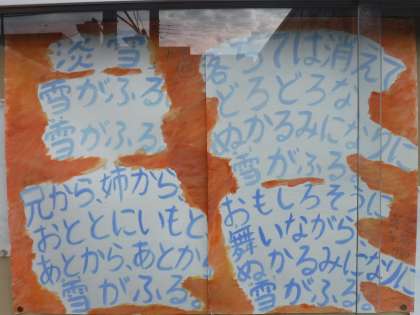 淡雪
雪がふる
雪がふる
落ちては消えて
どろどろな
ぬかるみになりに
雪がふる。
兄から、姉から、
おととにいもと、
あとから、あとから
雪がふる。
おもしろそうに
舞いながら
ぬかるみになりに
雪がふる。